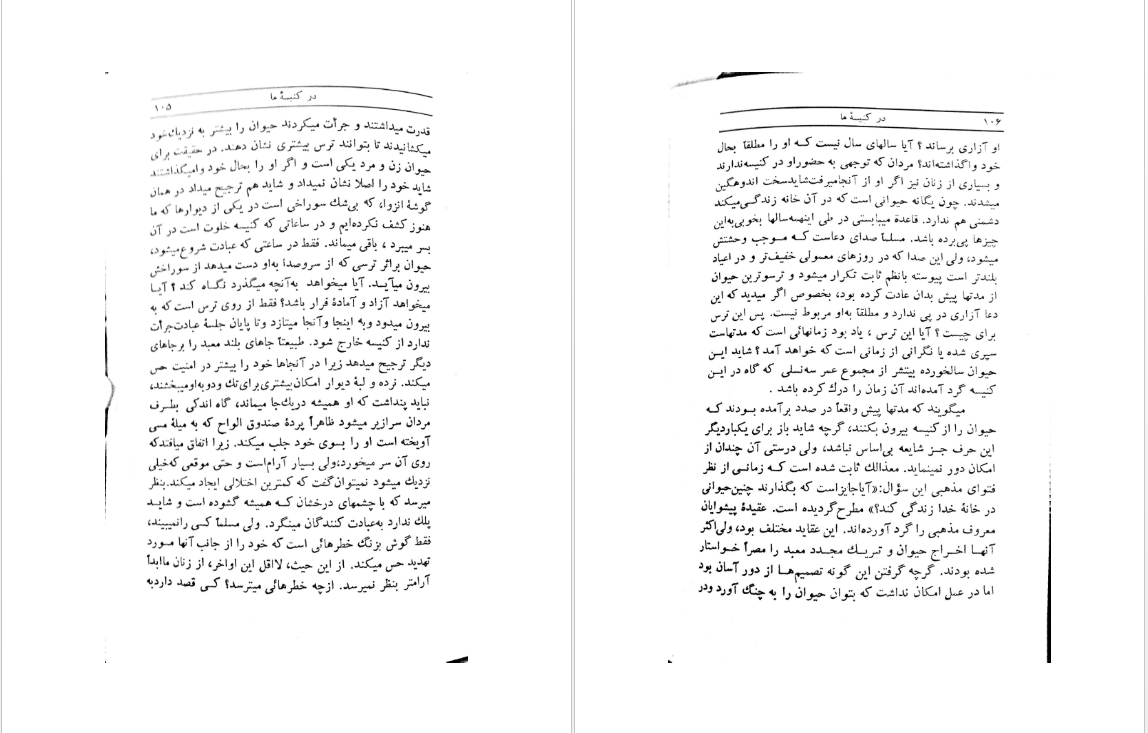 در کنیسهٔ ما
۱۰۵
قدرت میداشتند و جرأت میکردند حیوان را بیشتر به نزدیك‌خود
میکشانیدند تا بتوانند ترس بیشتری نشان دهند. در حقیقت برای
حیوان زن و مرد یکی است و اگر او را بحال خود وامیگذاشتند
شاید خود را اصلا نشان نمیداد و شاید هم ترجیح میداد در همان
گوشهٔ انزوا، که بی‌شك سوراخی است در یکی از دیوارها که ما
هنوز کشف نکرده‌ایم و در ساعاتی که کنیسه خلوت است در آن
بسر میبرد ، باقی میماند. فقط در ساعتی که عبادت شروع‌میشود،
حیوان براثر ترسی که از سروصدا به‌او دست میدهد از سوراخش
بیرون میآیـد. آیا میخواهد به‌آنچه میگذرد نگـاه کند ؟ آیـا
میخواهد آزاد و آمادهٔ فرار باشد؟ فقط از روی ترس است که به
بیرون میدود وبه اینجا وآنجا میتازد وتا پایان جلسهٔ عبادت‌جرأت
ندارد از کنیسه خارج شود. طبیعتاً جاهای بلند معبد را برجاهای
دیگر ترجیح میدهد زیرا در آنجاها خود را بیشتر در امنیت حس
میکند. نرده و لبهٔ دیوار امکان‌بیشتری‌برای‌تك ودوبه‌اومیبخشند،
نباید پنداشت که او همیشه دریك‌جا میماند، گاه اندکی بطـرف
مردان سرازیر میشود ظاهراً پردهٔ صندوق الواح که به میلهٔ مسی
آویخته است او را بسوی خود جلب میکند. زیرا اتفاق میافتدکه
روی آن سر میخورد،ولی بسیار آرام‌است و حتی موقعی که‌خیلی
نزدیك میشود نمیتوان‌گفت که کمترین اختلالی ایجاد میکند.بنظر
میرسد که با چشمهای درخشان کـه همیشه گشوده است و شایـد
پلك ندارد به‌عبادت کنندگان مینگرد. ولی مسلماً کسی رانمیبیند،
فقط گوش بزنگ خطرهائی است که خود را از جانب آنها مـورد
تهدید حس میکند. از این حیث، لااقل این اواخر، از زنان ماابداً
آرامتر بنظر نمیرسد. ازچه خطرهائی میترسد؟ کـی قصد داردبه
در کنیسهٔ ما
۱۰۶
او آزاری برساند ؟ آیا سالهای سال نیست کـه او را مطلقاً بحال
خود واگذاشته‌اند؟ مردان که توجهی به حضوراو در کنیسه‌ندارند
و بسیاری از زنان نیز اگر او از آنجامیرفت‌شایدسخت اندوهگین
میشدند. چون یگانه حیوانی است که در آن خانه زندگـی‌میکند
دشمنی هم ندارد. قاعدةً میبایستی در طی اینهمه‌سالها بخوبی‌به‌این
چیزها پی‌برده باشد. مسلماً صدای دعاست کـه مـوجب وحشتش
میشود، ولی این صدا که در روزهای معمولی خفیف‌تر و در اعیاد
بلندتر است پیوسته بانظم ثابت تکرار میشود و ترسوترین حیوان
از مدتها پیش بدان عادت کرده بود، بخصوص اگر میدید که این
دعا آزاری در پی ندارد و مطلقاً به‌او مربوط نیست. پس این ترس
برای چیست ؟ آیا این ترس ، یاد بود زمانهائی است که مدتهاست
سپری شده یا نگرانی از زمانی است که خواهد آمد؟ شاید ایـن
حیوان سالخورده بیشتر از مجموع عمر سه‌نسلی که گاه در ایـن
کنیسه گرد آمده‌اند آن زمان را درك کرده باشد .
میگویند که مدتها پیش واقعاً در صدد برآمده بـودند کـه
حیوان را از کنیسه بیرون بکنند، گرچه شاید باز برای یکباردیگر
این حرف جـز شایعه بی‌اساس نباشد، ولی درستی آن چندان از
امکان دور نمینماید. معذالك ثابت شده است کـه زمانـی از نظر
فتوای مذهبی این سؤال:«آیاجایزاست که بگذارند چنین‌حیوانی
در خانهٔ خدا زندگی کند؟» مطرح‌گردیده است. عقیدهٔ پیشوایان
معروف مذهبی را گرد آورده‌اند. این عقاید مختلف بود، ولی‌اکثر
آنهـا اخـراج حیوان و تبریـك مجـدد معبـد را مصراً خـواستار
شده بودند. گرچه گرفتن این گونه تصمیم‌هـا از دور آسان بود
اما در عمل امکان نداشت که بتوان حیوان را به چنگ آورد ودر